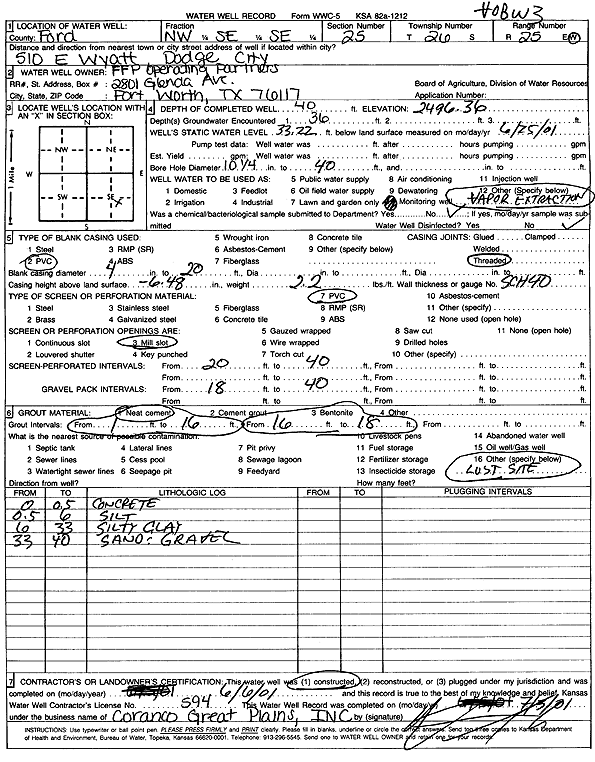 WATER WELL RECORD Form WWC-5 KSA 82a-1212 HOBW3
1 LOCATION OF WATER WELL: Fraction Section Number Township Number Range Number
County: Ford NW ¼ SE ¼ SE ¼ 25 T 26 S R 25 E/W
Distance and direction from nearest town or city street address of well if located within city?
510 E Wyatt Dodge City
2 WATER WELL OWNER: FFP Operating Partners
RR#, St. Address, Box # : 2801 Glenda Ave. Board of Agriculture, Division of Water Resources
City, State, ZIP Code : Fort Worth, TX 76117 Application Number:
3 LOCATE WELL'S LOCATION WITH AN "X" IN SECTION BOX: 4 DEPTH OF COMPLETED WELL 40 ft. ELEVATION: 2496.36
N Depth(s) Groundwater Encountered 1. 36 ft. 2. ft. 3. ft.
WELL'S STATIC WATER LEVEL 33.22 ft. below land surface measured on mo/day/yr 6/25/01
NW NE Pump test data: Well water was ft. after hours pumping gpm
Est. Yield gpm: Well water was ft. after hours pumping gpm
W E Bore Hole Diameter 10 1/4 in. to 40 ft., and in. to ft.
1 Mile WELL WATER TO BE USED AS: 5 Public water supply 8 Air conditioning 11 Injection well
SW SE 1 Domestic 3 Feedlot 6 Oil field water supply 9 Dewatering 12 Other (Specify below)
2 Irrigation 4 Industrial 7 Lawn and garden only 10 Monitoring well VAPOR EXTRACTION
S Was a chemical/bacteriological sample submitted to Department? Yes No ✓; If yes, mo/day/yr sample was submitted Water Well Disinfected? Yes No ✓
5 TYPE OF BLANK CASING USED: 5 Wrought iron 8 Concrete tile CASING JOINTS: Glued Clamped
1 Steel 3 RMP (SR) 6 Asbestos-Cement 9 Other (specify below) Welded
2 PVC 4 ABS 7 Fiberglass Threaded
Blank casing diameter 4 in. to 20 ft., Dia in. to ft., Dia in. to ft.
Casing height above land surface -6.48 in., weight 2.2 lbs./ft. Wall thickness or gauge No. SCH40
TYPE OF SCREEN OR PERFORATION MATERIAL: 7 PVC 10 Asbestos-cement
1 Steel 3 Stainless steel 5 Fiberglass 8 RMP (SR) 11 Other (specify)
2 Brass 4 Galvanized steel 6 Concrete tile 9 ABS 12 None used (open hole)
SCREEN OR PERFORATION OPENINGS ARE: 5 Gauzed wrapped 8 Saw cut 11 None (open hole)
1 Continuous slot 3 Mill slot 6 Wire wrapped 9 Drilled holes
2 Louvered shutter 4 Key punched 7 Torch cut 10 Other (specify)
SCREEN-PERFORATED INTERVALS: From 20 ft. to 40 ft., From ft. to ft.
From ft. to ft., From ft. to ft.
GRAVEL PACK INTERVALS: From 18 ft. to 40 ft., From ft. to ft.
From ft. to ft., From ft. to ft.
6 GROUT MATERIAL: 1 Neat cement 2 Cement grout 3 Bentonite 4 Other
Grout Intervals: From 1 ft. to 16 ft., From 16 ft. to 18 ft., From ft. to ft.
What is the nearest source of possible contamination: 10 Livestock pens 14 Abandoned water well
1 Septic tank 4 Lateral lines 7 Pit privy 11 Fuel storage 15 Oil well/Gas well
2 Sewer lines 5 Cess pool 8 Sewage lagoon 12 Fertilizer storage 16 Other (specify below)
3 Watertight sewer lines 6 Seepage pit 9 Feedyard 13 Insecticide storage LUST SITE
Direction from well? How many feet?
FROM TO LITHOLOGIC LOG FROM TO PLUGGING INTERVALS
0 0.5 CONCRETE
0.5 6 SILT
6 33 SILTY CLAY
33 40 SAND & GRAVEL
7 CONTRACTOR'S OR LANDOWNER'S CERTIFICATION: This water well was (1) constructed, (2) reconstructed, or (3) plugged under my jurisdiction and was
completed on (mo/day/year) 6/6/01 and this record is true to the best of my knowledge and belief. Kansas
Water Well Contractor's License No. 594 This Water Well Record was completed on (mo/day/yr) 7/5/01
under the business name of Coranco Great Plains, INC by (signature)
INSTRUCTIONS: Use typewriter or ball point pen. PLEASE PRESS FIRMLY and PRINT clearly. Please fill in blanks, underline or circle the correct answers. Send top three copies to Kansas Department
of Health and Environment, Bureau of Water, Topeka, Kansas 66620-0001. Telephone: 913-296-5545. Send one to WATER WELL OWNER and retain one for your records.